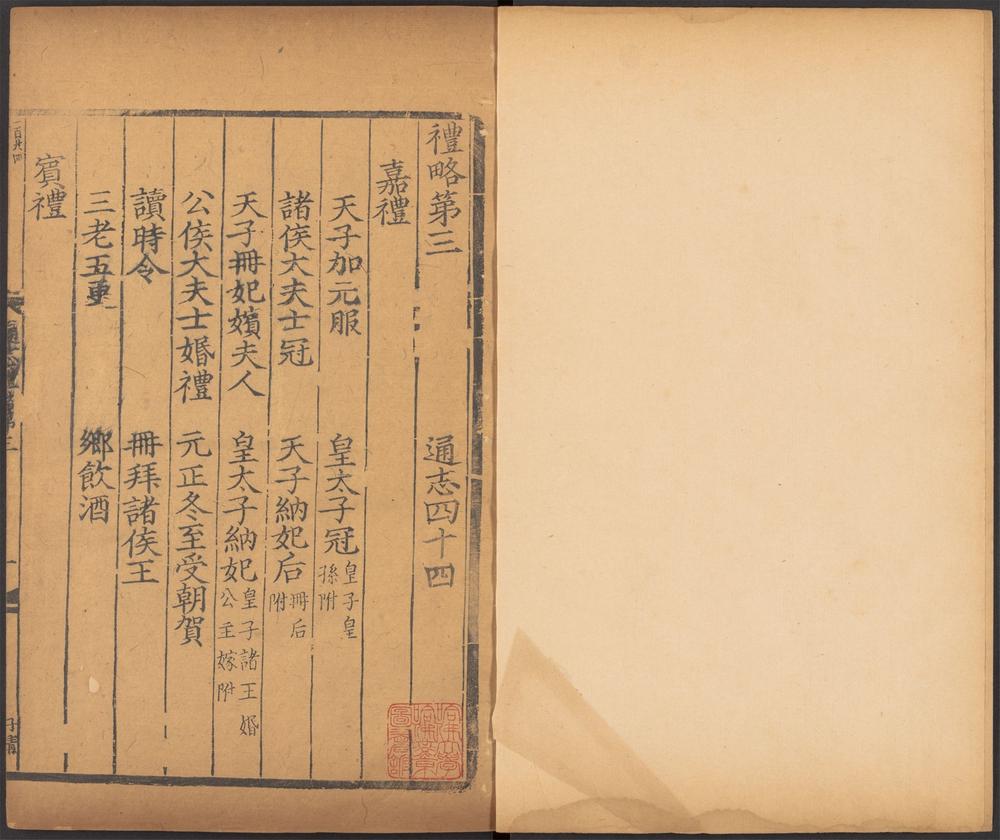 禮略第三 通志四十四
嘉禮
天子加元服 皇太子冠 皇子皇孫附
諸侯大夫士冠 天子納妃后 冊后附
天子冊妃嬪夫人 皇太子納妃 皇子諸王婚公主嫁附
公侯大夫士婚禮 元正冬至受朝賀
讀時令 冊拜諸侯王
三老五更 鄉飲酒
賓禮
哈佛大學
哈佛燕京
圖書館